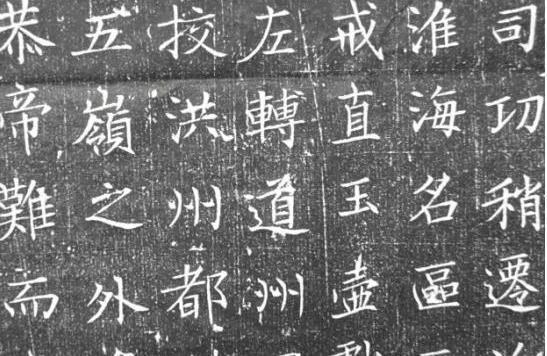 司功稍遷
淮海名區
戒直玉壺
左轉道州
挍洪州都
五嶺之外
恭帝難而